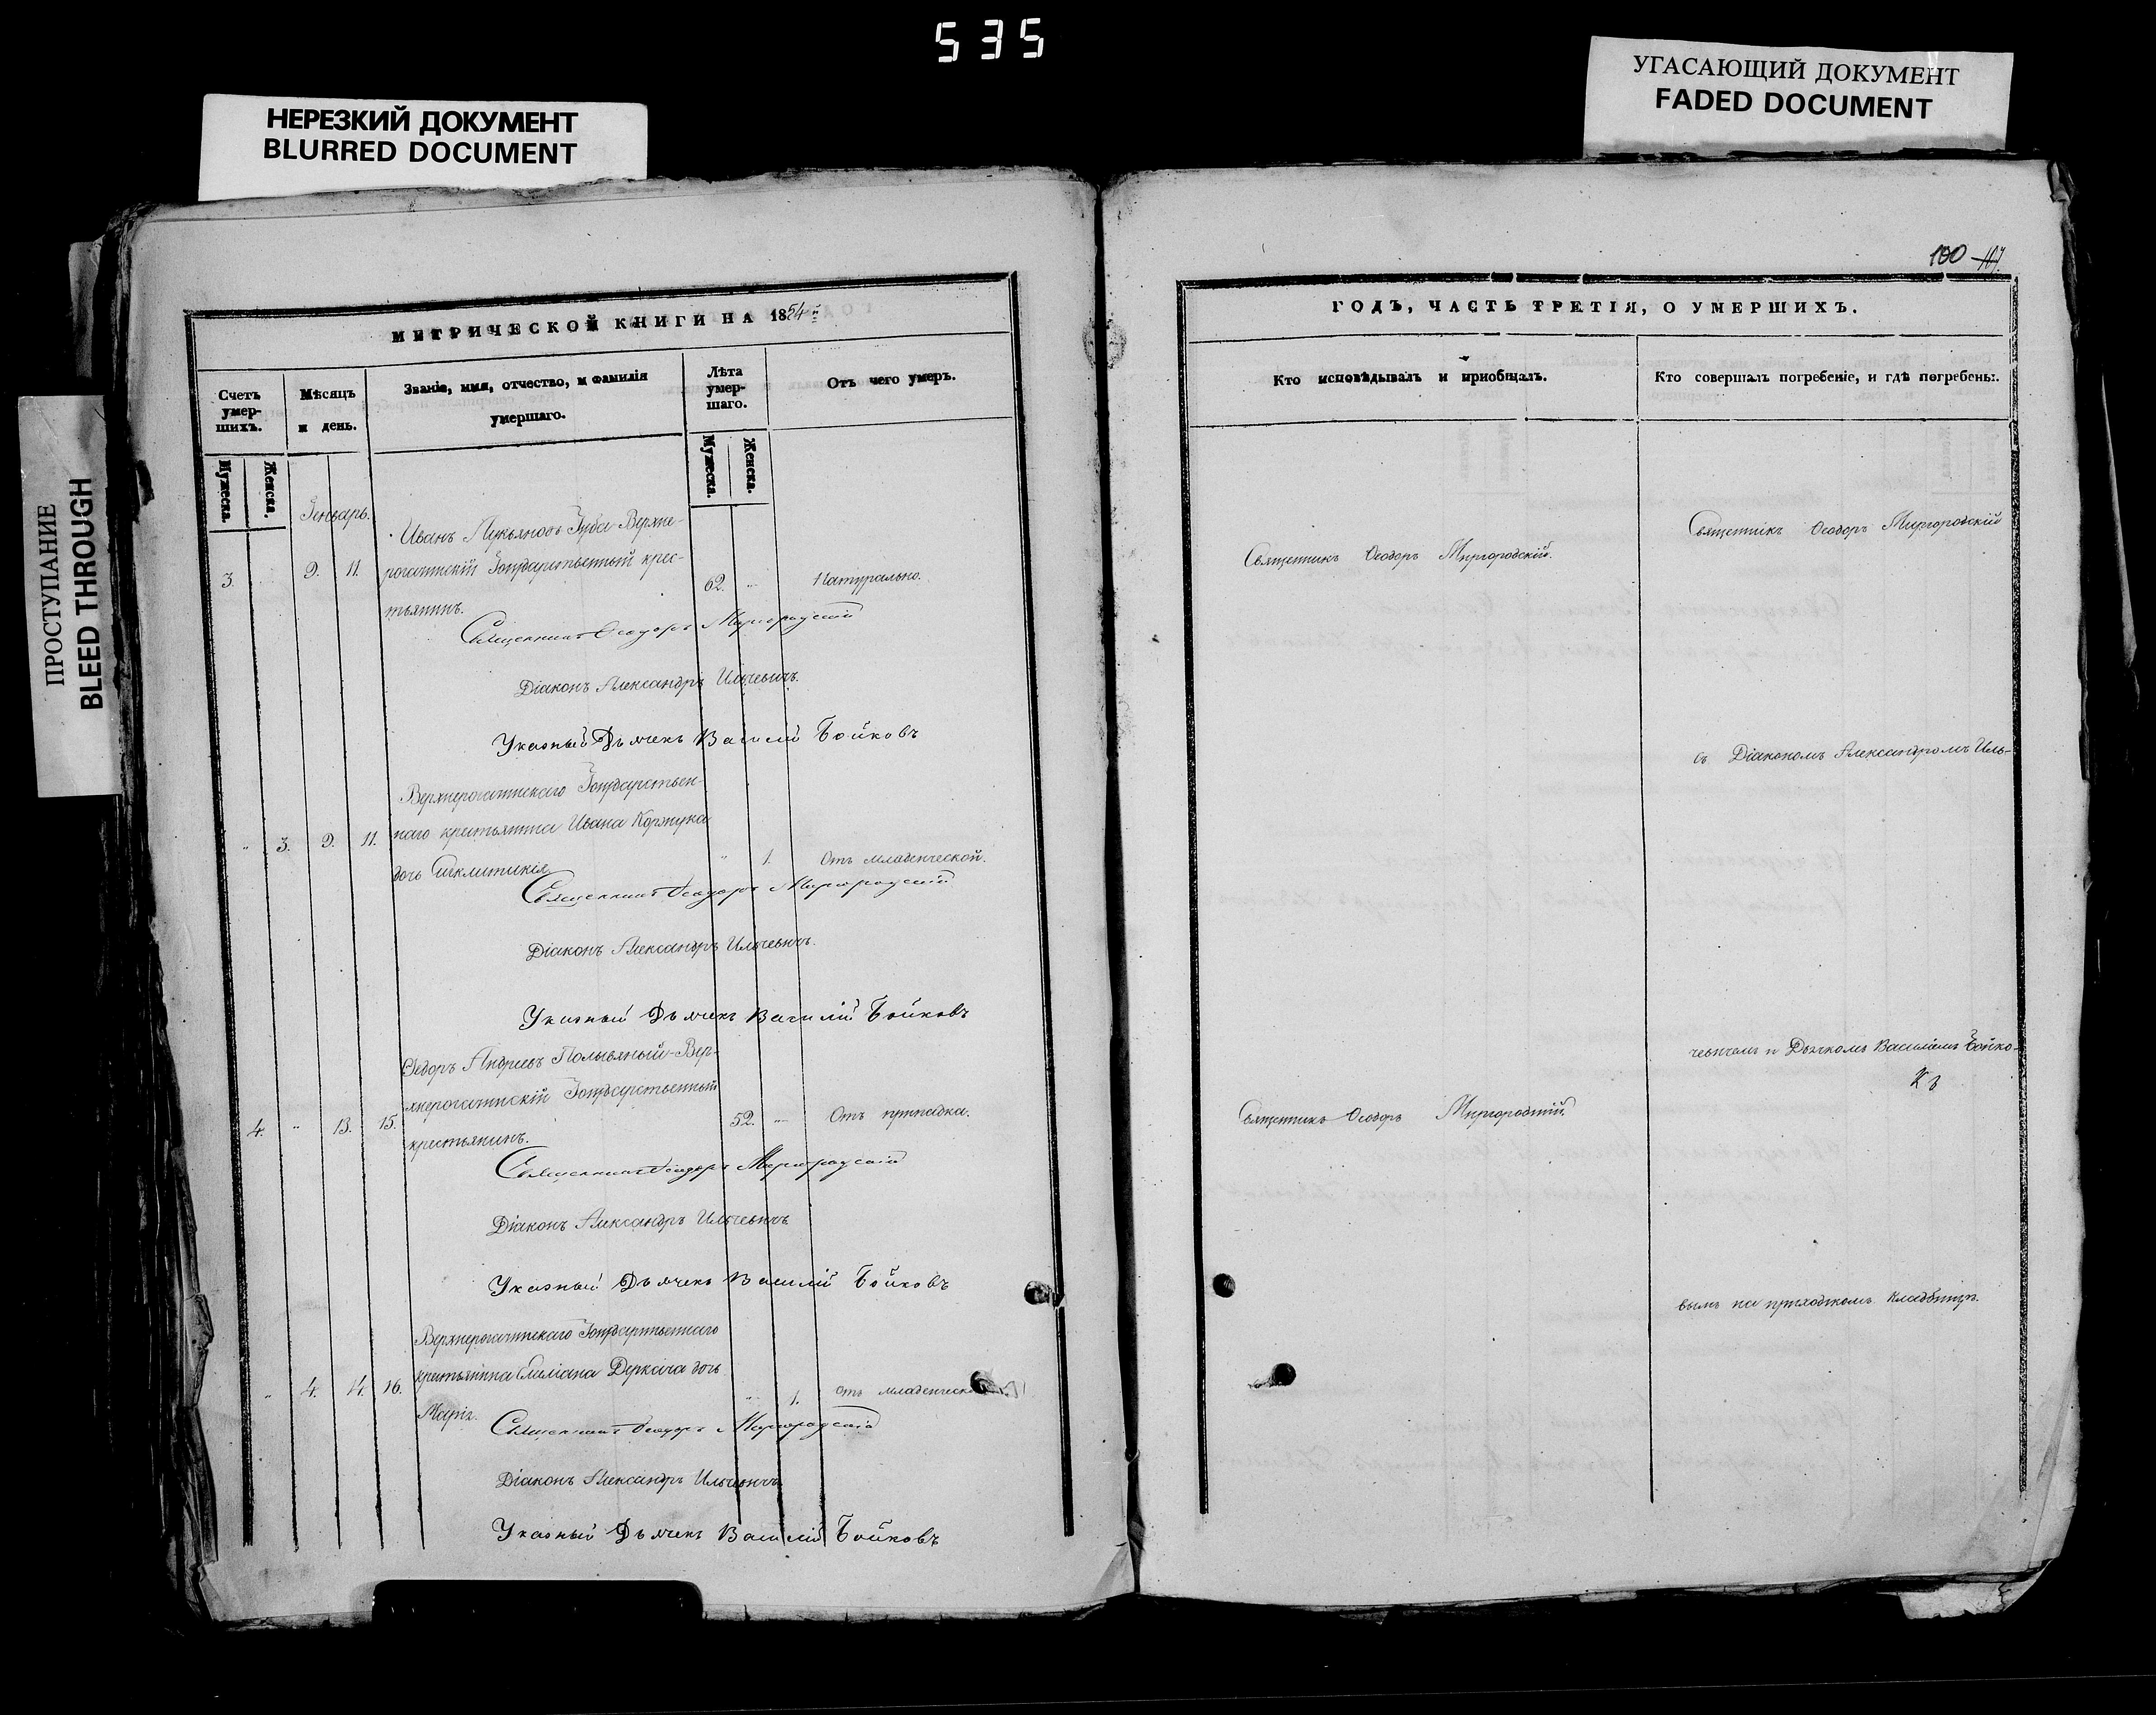 535
НЕРЕЗКИЙ ДОКУМЕНТ
BLURRED DOCUMENT
УГАСАЮЩИЙ ДОКУМЕНТ
FADED DOCUMENT
ПРОСТУПАНИЕ
BLEED THROUGH
МЕТРИЧЕСКОЙ КНИГИ НА 1854й
Счетъ умер-шихъ.
Мужеска.
Женска.
Мѣсяцъ и день.
Званіе, имя, отчество, и фамилія умершаго.
Лѣта умер-шаго.
Мужеска.
Женска.
Отъ чего умеръ.
Генварь.
3. 9. 11.
Иванъ Лукьяновъ Губа Верхне-
рогачинскій Государственный крес-
тьянинъ.
62. Натурально.
Священникъ Ѳеодоръ Миргородскій
Діаконъ Александръ Ильчевичъ.
Указный Дьячекъ Василій Бойковъ
Верхнерогачинскаго Государствен-
наго крестьянина Ивана Коржука
дочь Сигклитикія
" 3. 9. 11.
" 1. Отъ младенческой.
Священникъ Ѳеодоръ Миргородскій
Діаконъ Александръ Ильчевичъ.
Указный Дьячекъ Василій Бойковъ
Ѳедоръ Андреевъ Полывяный Вер-
хнерогачинскій Государственный
крестьянинъ.
4. " 13. 15.
52. " Отъ припадка.
Священникъ Ѳеодоръ Миргородскій
Діаконъ Александръ Ильчевичъ
Указный Дьячекъ Василій Бойковъ
Верхнерогачинскаго Государственнаго
крестьянина Емиліана Деркача дочь
Марія.
" 4. 14. 16.
" 1. Отъ младенческой
Священникъ Ѳеодоръ Миргородскій
Діаконъ Александръ Ильчевичъ
Указный Дьячекъ Василій Бойковъ
100 107.
ГОДЪ, ЧАСТЬ ТРЕТІЯ, О УМЕРШИХЪ.
Кто исповѣдывалъ и пріобщалъ.
Кто совершалъ погребеніе, и гдѣ погребены.
Священникъ Ѳеодоръ Миргородскій.
Священникъ Ѳеодоръ Миргородскій
съ Діакономъ Александромъ Иль-
чевичемъ и Дьячкомъ Василіемъ Бойко-
Священникъ Ѳеодоръ Миргородскій.
вымъ на приходскомъ кладбищѣ.